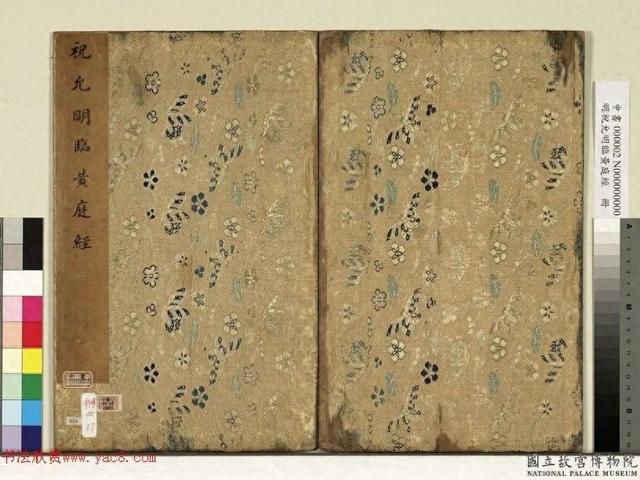 祝允明臨黃庭經
中書 000002 N000000000
明祝允明臨黃庭經 冊
書法欣赏www.yac8.com
國立故宮博物院
NATIONAL PALACE MUSEUM
A
M
B